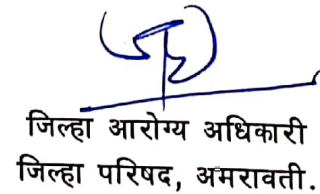 जिल्हा आरोग्य अधिकारी
जिल्हा परिषद, अमरावती.